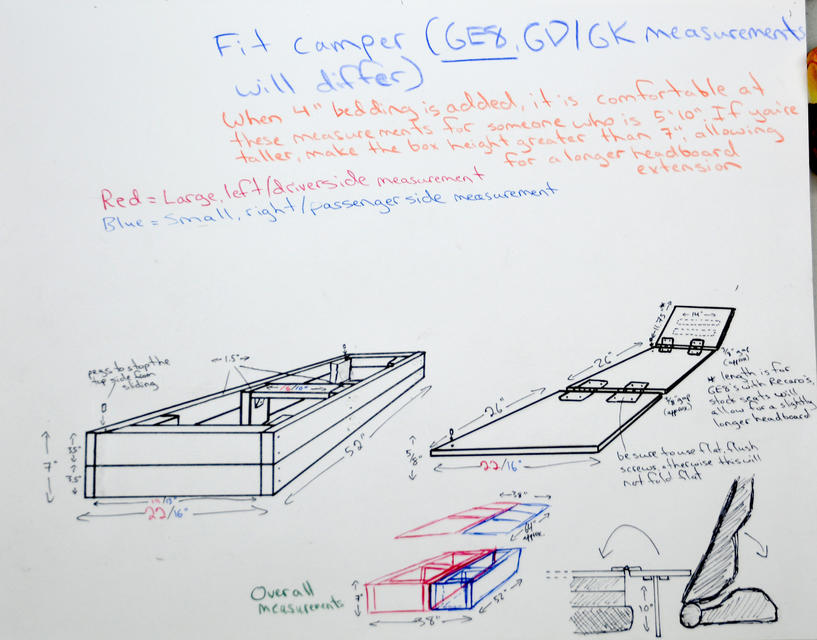 Fit camper (GE8, GD/GK measurements
will differ)
When 4" bedding is added, it is comfortable at
these measurements for someone who is 5'10". If you're
taller, make the box height greater than 7", allowing
for a longer headboard
extension
Red = Large, left/driverside measurement
Blue = Small, right/passenger side measurement
pegs to stop the
top side from
sliding
1.5"
7"
3.5"
3.5"
22/16"
52"
14"
11.75"*
26"
3/8" gap
(approx)
26"
3/8" gap
(approx)
* length is for
GE8's with Recaro's,
stock seats will
allow for a slightly
longer headboard
5/8"
22/16"
be sure to use flat, flush
screws, otherwise this will
not fold flat
38"
64"
approx
Overall
measurements
7"
38"
52"
10"